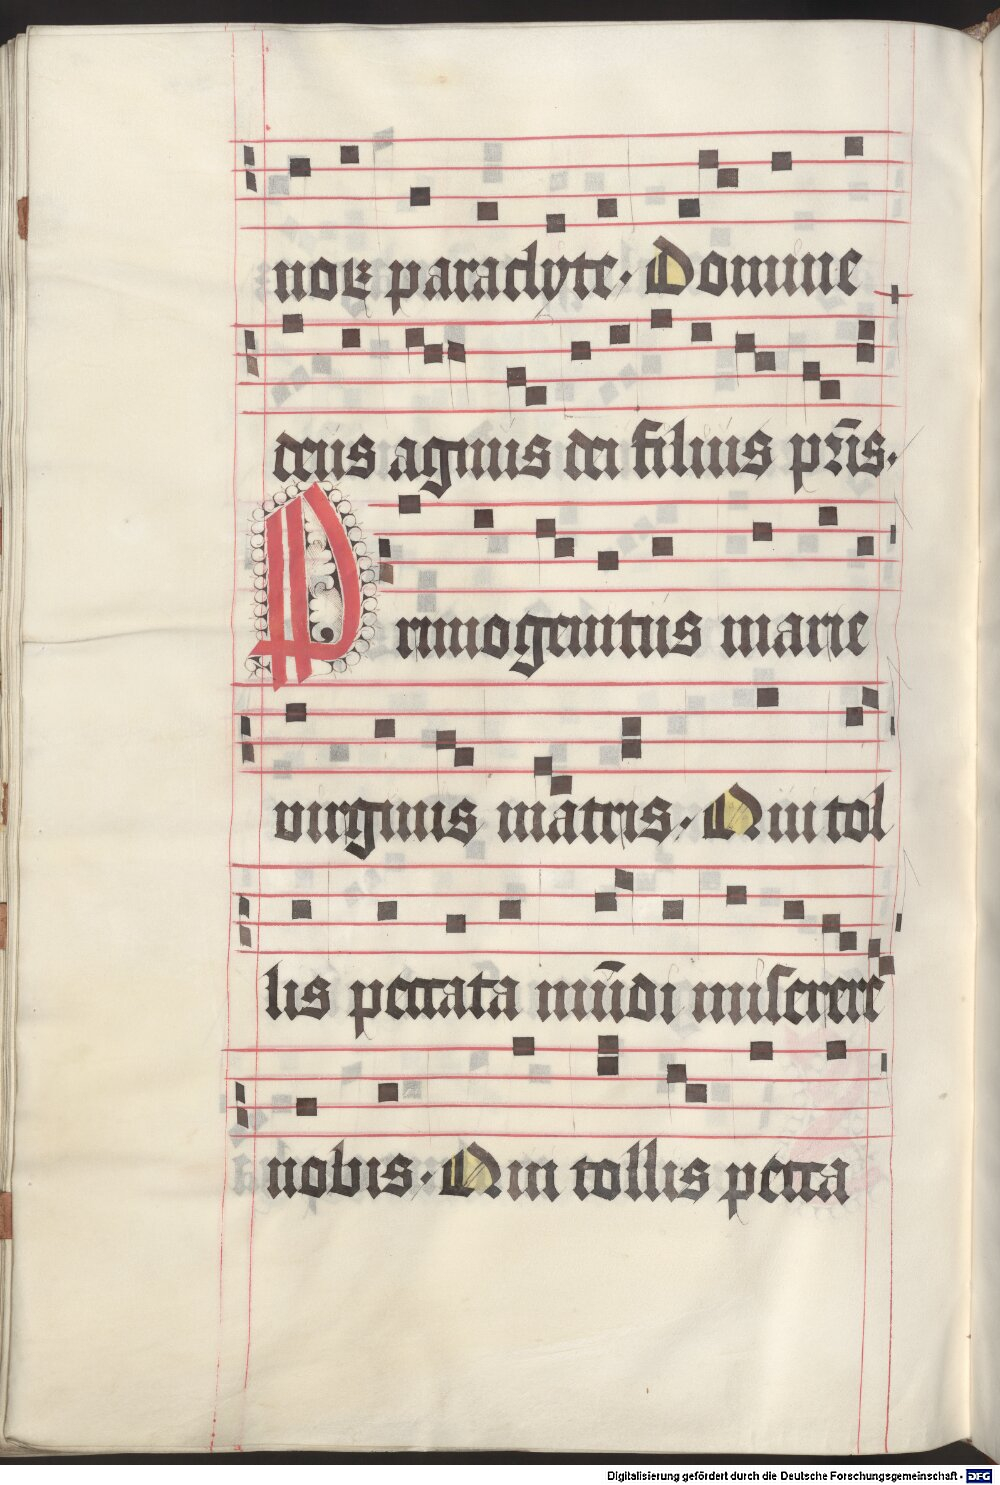 nor paraclyte. Domine
deus agnus dei filius pr̄is.
Primogenitus marie
virginis matris. Qui tol
lis peccata mūdi miserere
nobis. Qui tollis pecca
Digitalisierung gefördert durch die Deutsche Forschungsgemeinschaft - DFG